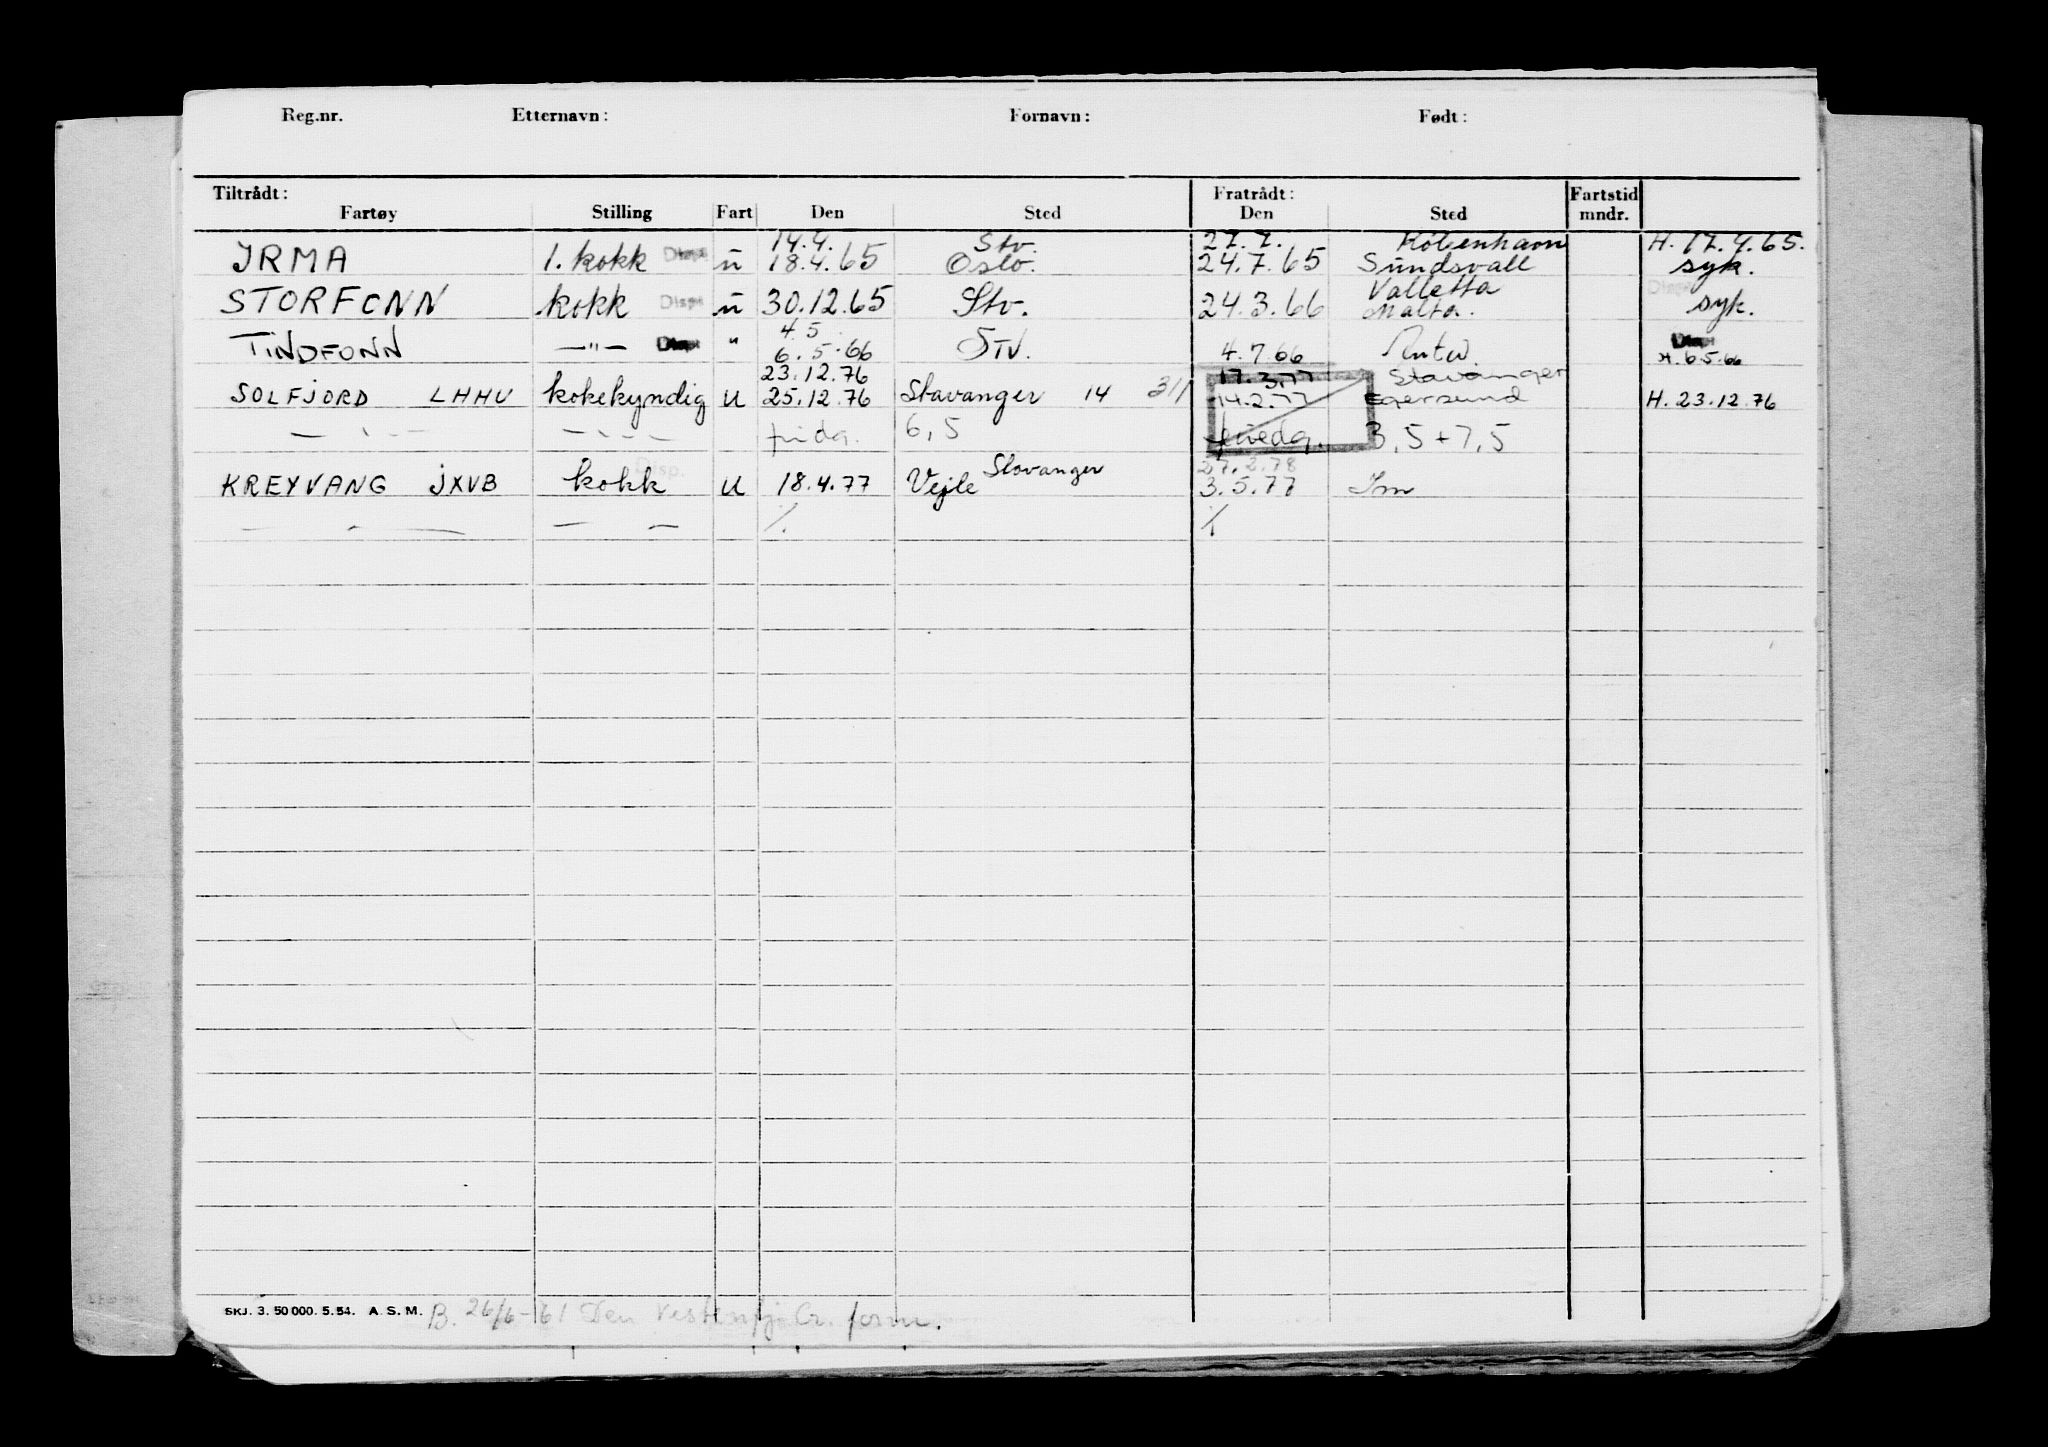 Reg.nr. Etternavn: Fornavn: Født:
Tiltrådt: Fratrådt: Fartstid
Fartøy Stilling Fart Den Sted Den Sted mndr.
14.4. Stv. 27.7. København H. 17.4.65.
IRMA 1. kokk Disp u 18.4.65 Oslo. 24.7.65 Sundsvall syk.
Valletta
STORFONN kokk Disp u 30.12.65 Stv. 24.3.66 Malta. syk.
4.5 Disp
TINDFONN —"— Disp " 6.5.66 STV. 4.7.66 Antw. H. 6.5.66
23.12.76 17.3.77 Stavanger
SOLFJORD LHHU kokekyndig U 25.12.76 Stavanger 14 311 14.2.77 Egersund H. 23.12.76
6,5 3,5+7,5
Disp. Stavanger 27.2.78
KREYVANG JXVB kokk U 18.4.77 Vejle 3.5.77 Im
— — — — — ⁒ ⁒
SKJ. 3. 50 000. 5. 54. A. S. M. B. 26/6-61 Den form.